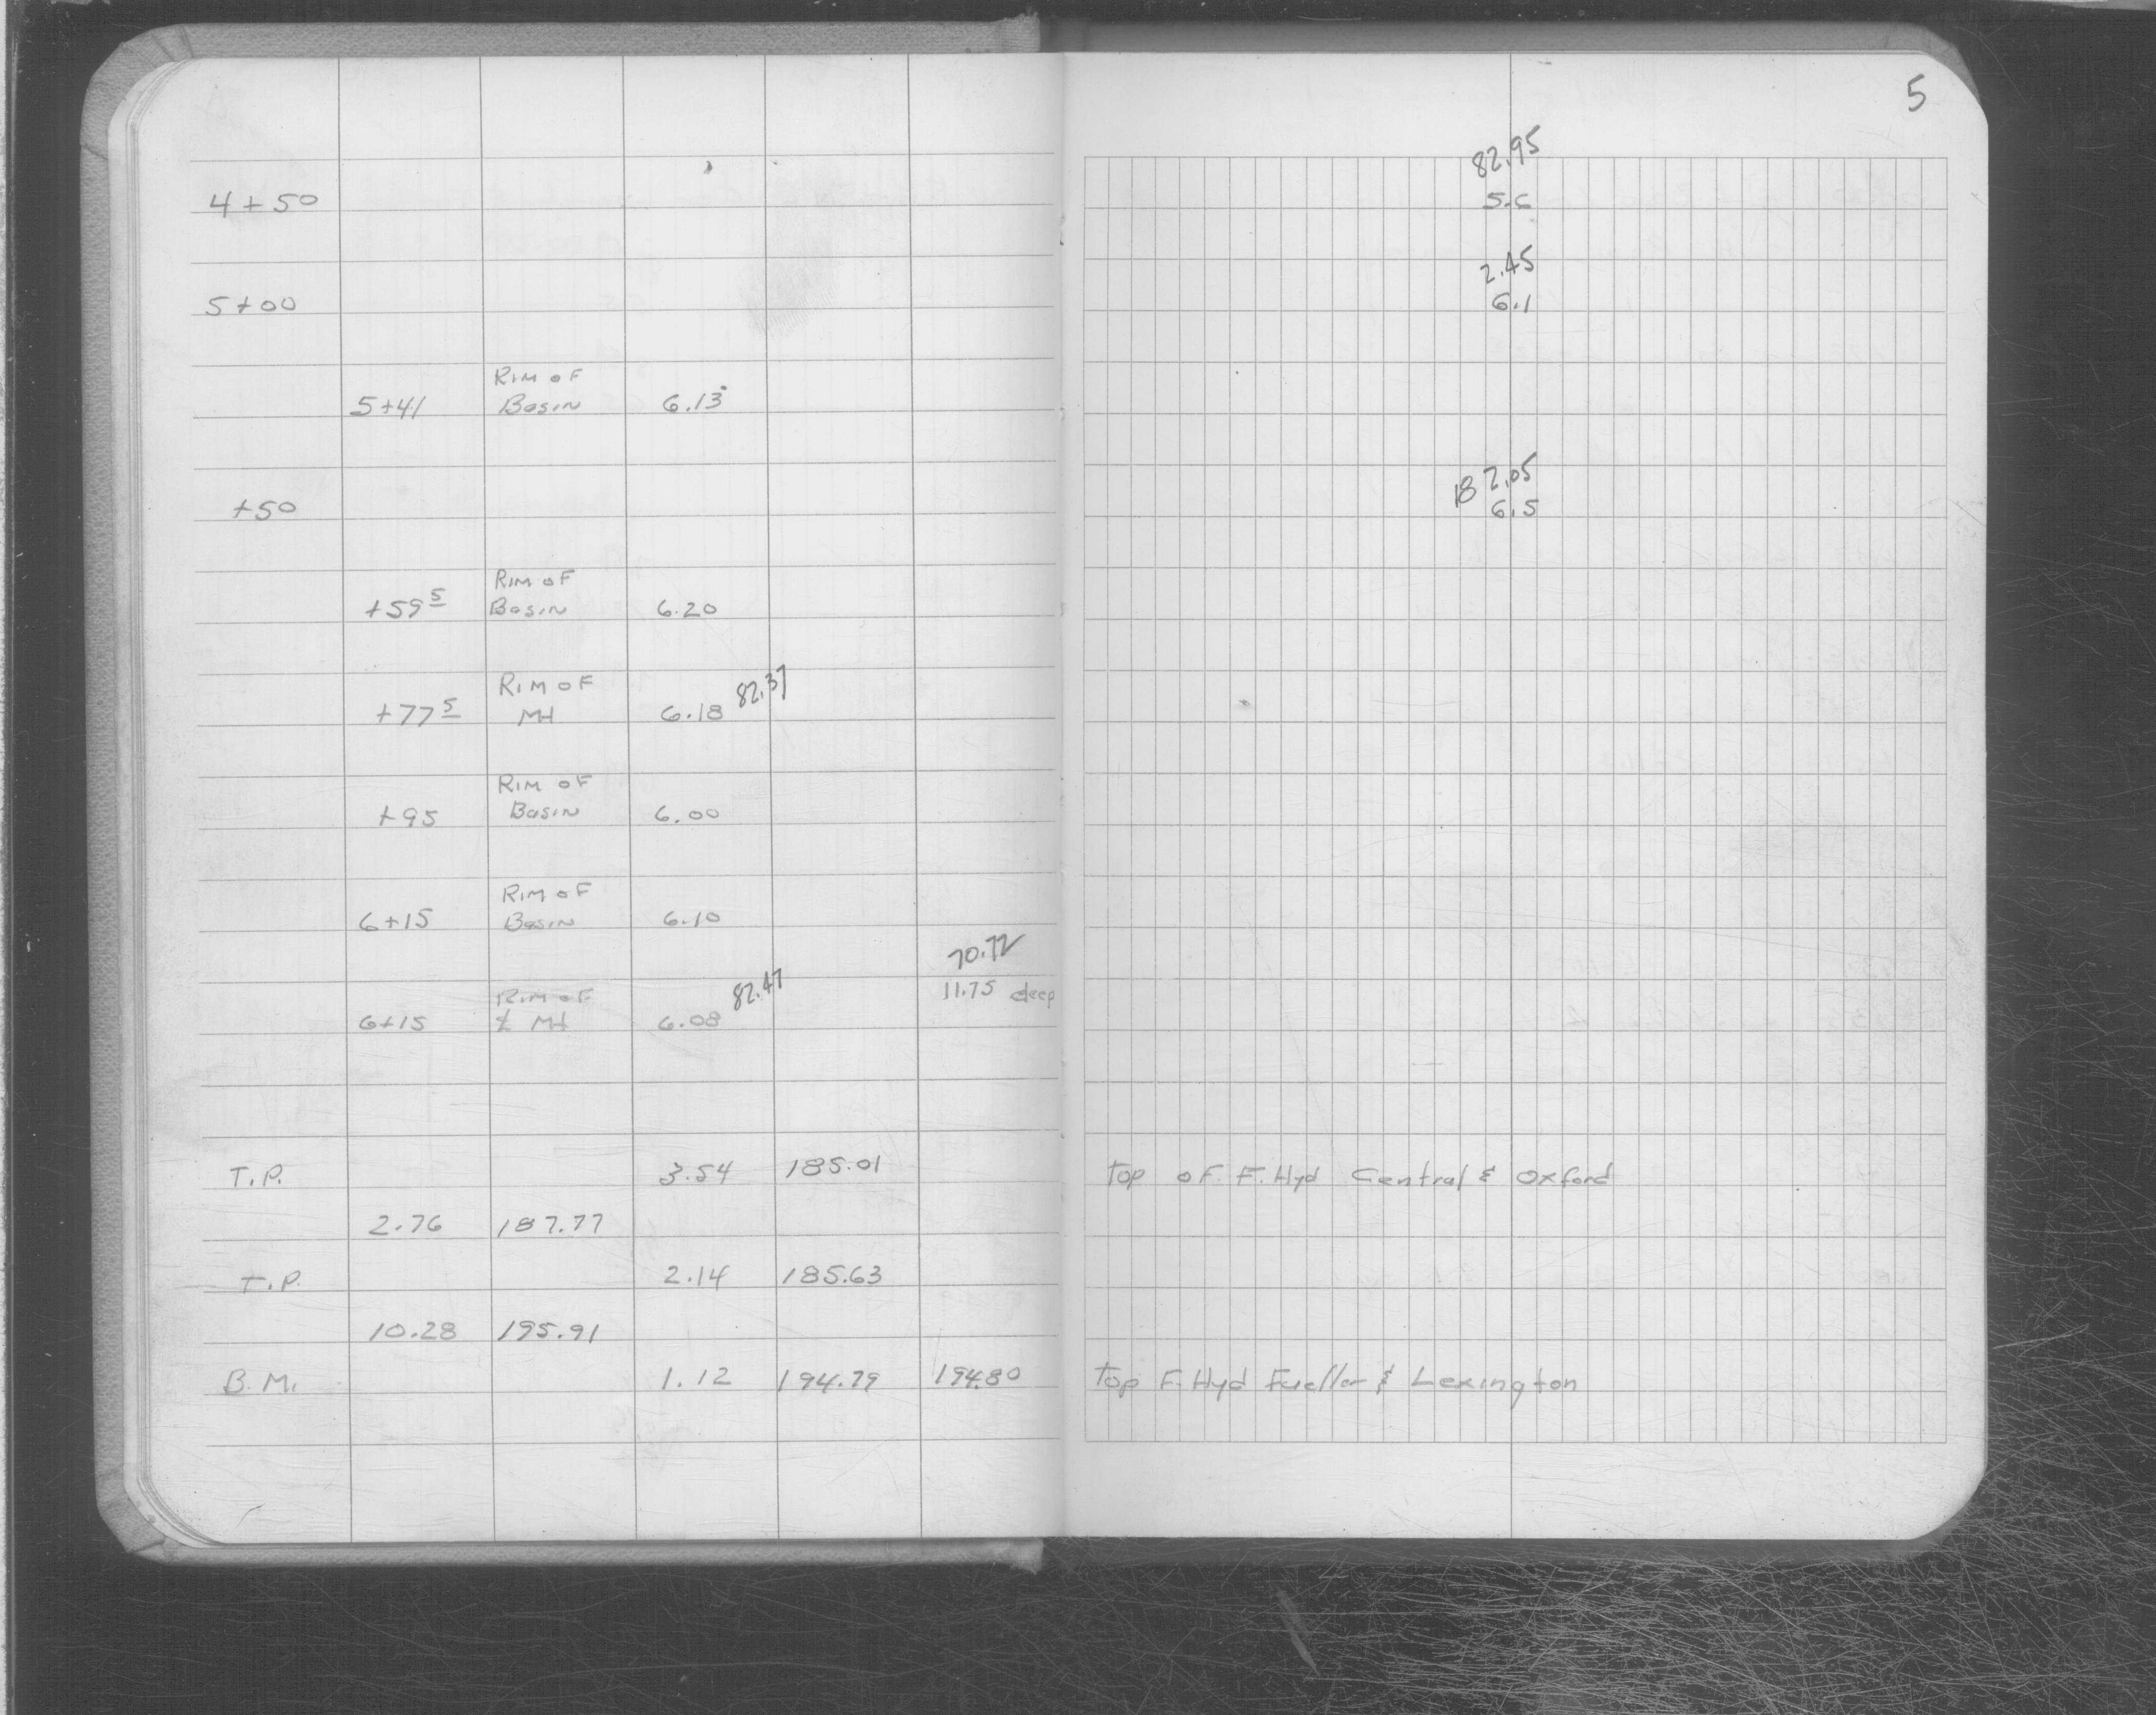 5
82.95
4+50 5.6
2.45
5+00 6.1
Rim of
5+41 Basin 6.13
182.05
+50 6.5
Rim of
+59 5 Basin 6.20
Rim of 82.37
+77 5 MH 6.18
Rim of
+95 Basin 6.00
Rim of
6+15 Basin 6.10
70.72
Rim of 82.47 11.75 deep
6+15 ℄ MH 6.08
T.P. 3.54 185.01 Top of F. Hyd Central & Oxford
2.76 187.77
T.P. 2.14 185.63
10.28 195.91
B.M. 1.12 194.79 194.80 Top F. Hyd Fueller & Lexington